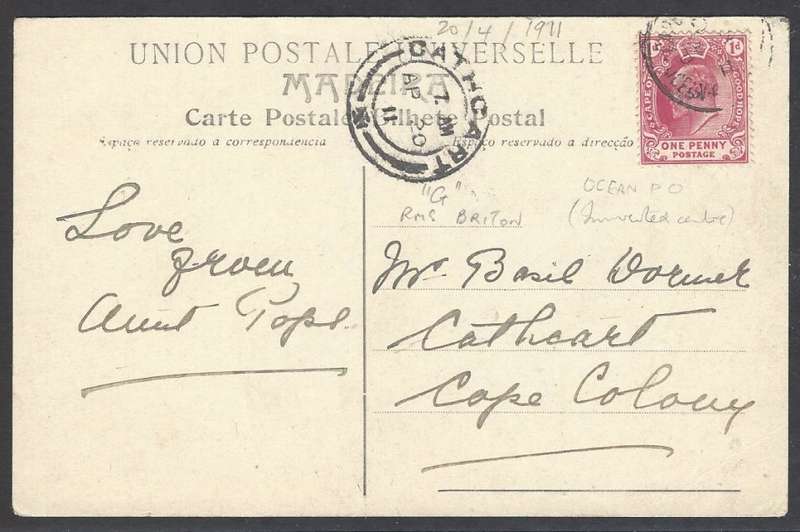 20/4/1911
UNION POSTALE UNIVERSELLE
MADEIRA
Carte Postale Bilhete Postal
Espaço reservado á correspondencia
Espaço reservado á direcção
CATHCART
7. AM
AP 20
11
1d
CAPE OF GOOD HOPE
ONE PENNY
POSTAGE
"G"
RMS BRITON
OCEAN P O
(Inverted centre)
Love
from
Aunt Pope.
Mr. Basil Dormer
Cathcart
Cape Colony